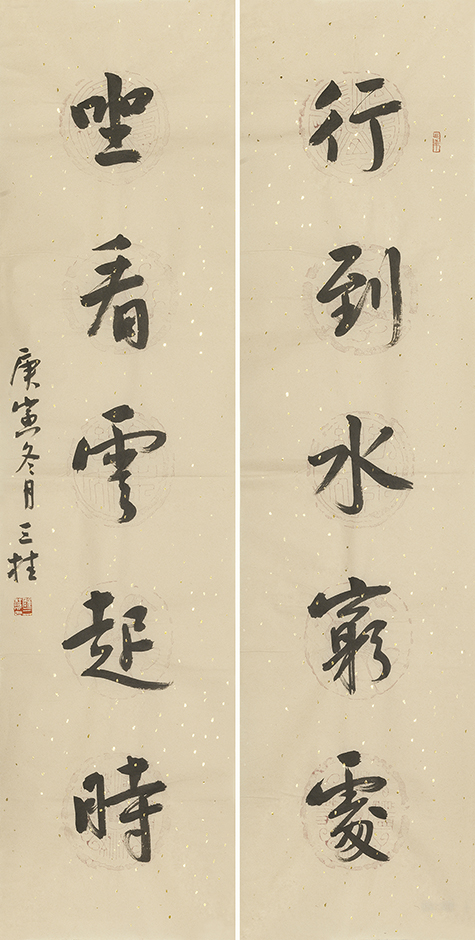 行到水窮處
坐看雲起時
庚寅冬月三桂